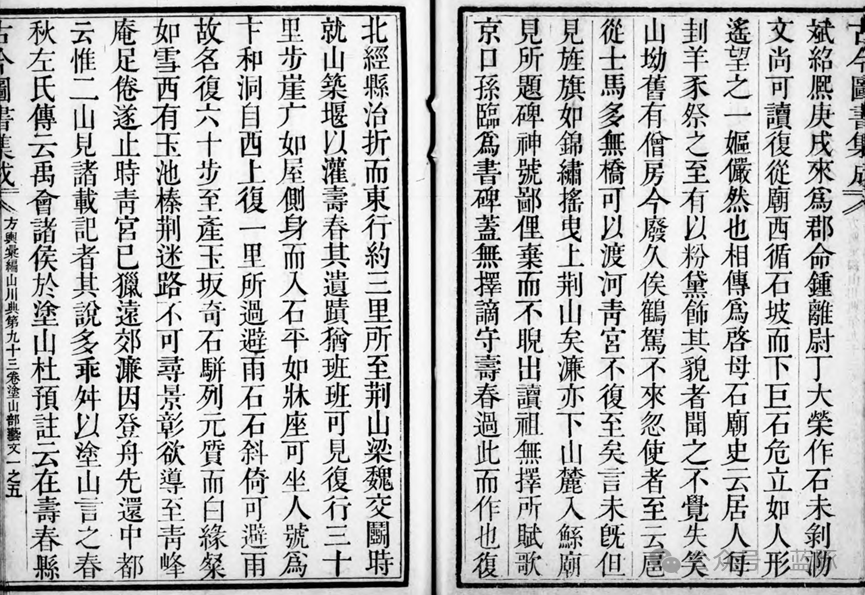 古今圖書集成
斌紹熙庚戌來爲郡命鍾離尉丁大榮作石未剝泐
文尚可讀復從廟西循石坡而下巨石危立如人形
遙望之一嫗儼然也相傳爲啓母石廟史云居人每
刲羊豕祭之至有以粉黛飾其貌者聞之不覺失笑
山坳舊有僧房今廢久俟鶴駕不來忽使者至云扈
從士馬多無橋可以渡河靑宮不復至矣言未旣但
見旌旗如錦繡搖曳上荆山矣濂亦下山麓入鯀廟
見所題碑神號鄙俚棄而不睨出讀祖無擇所賦歌
京口孫臨爲書碑蓋無擇謫守壽春過此而作也復
北經縣治折而東行約三里所至荆山梁魏交鬭時
就山築堰以灌壽春其遺蹟猶班班可見復行三十
里步崖广如屋側身而入石平如牀座可坐人號爲
卞和洞自西上復一里所過避雨石石斜倚可避雨
故名復六十步至產玉坂奇石騈列元質而白緣粲
如雪西有玉池榛荆迷路不可尋景彰欲導至靑峰
庵足倦遂止時靑宮已獵遠郊濂因登舟先還中都
云惟二山見諸載記者其說多乖舛以塗山言之春
秋左氏傳云禹會諸侯於塗山杜預註云在壽春縣
古今圖書集成
方輿彙編山川典第九十三卷塗山部藝文一之五
公众号